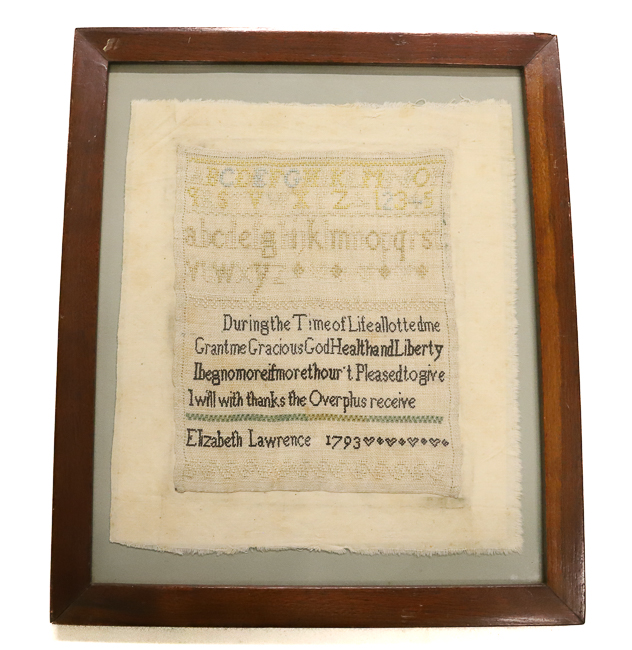 A B C D E F G H K L M N O
Q R S V W X Z 1 2 3 4 5
abcdefghijklmnopqrst
vuwxyz
During the Time of Life allotted me
Grant me Gracious God Health and Liberty
I beg no more if more thour't Pleased to give
I will with thanks the Overplus receive
Elizabeth Lawrence 1793